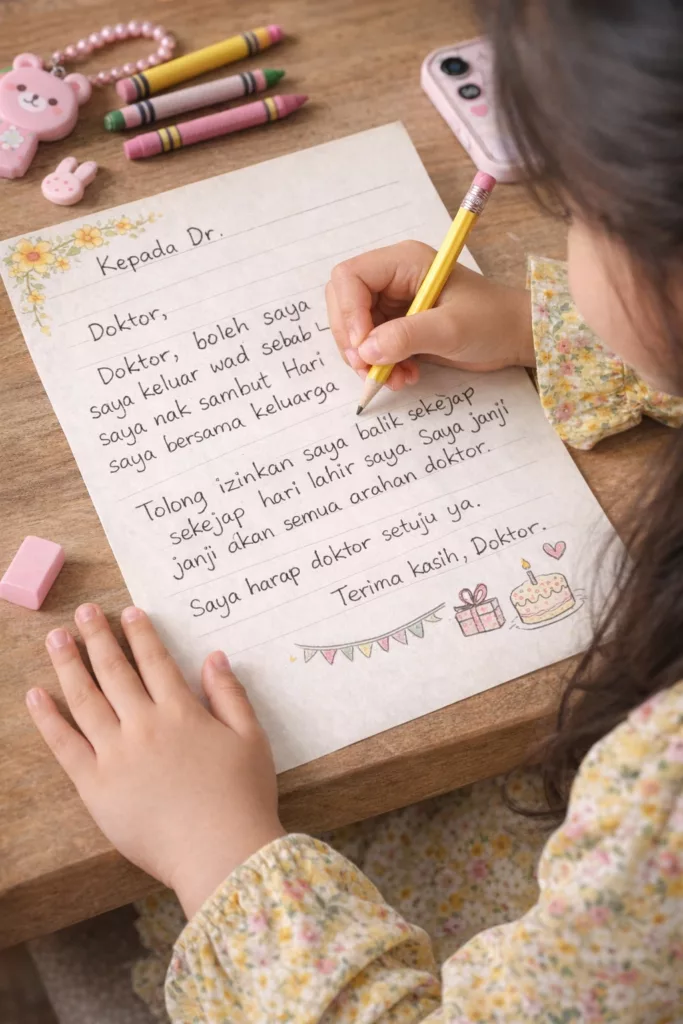 Kepada Dr.
Doktor,
Doktor, boleh saya
saya keluar wad sebab
saya nak sambut Hari
saya bersama keluarga
Tolong izinkan saya balik sekejap
sekejap hari lahir saya. Saya janji
janji akan semua arahan doktor.
Saya harap doktor setuju ya.
Terima kasih, Doktor.